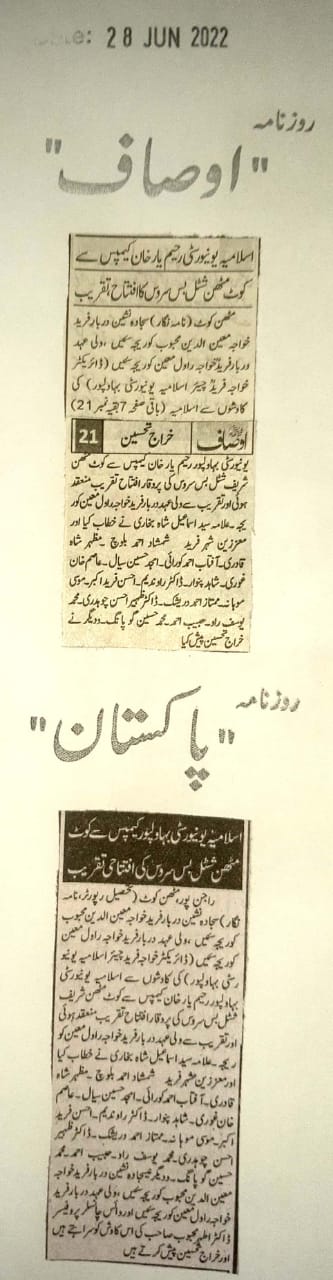 Date: 28 JUN 2022
روزنامہ
"اوصاف"
اسلامیہ یونیورسٹی رحیم یار خان کیمپس سے
کوٹ مٹھن شٹل بس سروس کا افتتاح، تقریب
مٹھن کوٹ (نامہ نگار) سجادہ نشین دربار فرید
خواجہ معین الدین محبوب کوریجہ سئیں، ولی عہد
دربار فرید خواجہ راول معین کوریجہ سئیں (ڈائریکٹر
خواجہ فرید چیئر اسلامیہ یونیورسٹی بہاولپور) کی
کاوشوں سے اسلامیہ (باقی صفحہ 7 بقیہ نمبر 21)
اوصاف خراج تحسین 21
یونیورسٹی بہاولپور رحیم یار خان کیمپس سے کوٹ مٹھن
شریف شٹل بس سروس کی پروقار افتتاح تقریب منعقد
ہوئی اور تقریب سے ولی عہد دربار فرید خواجہ راول معین کور
یجہ۔ علامہ سید اسماعیل شاہ بخاری نے خطاب کیا اور
معززین شہر فرید شمشاد احمد بلوچ۔ مظہر شاہ
قادری۔ آفتاب احمد کورائی۔ امجد حسین سیال۔ عاصم خان
غوری۔ شاہد پنوار۔ ڈاکٹر راو ندیم۔ احسن فرید اکبر۔ موسی
موہانہ۔ ممتاز احمد دریشک۔ ڈاکٹر ظہیر احسن چوہدری۔ محمد
یوسف راو۔ حبیب احمد۔ محمد حسین گوپانگ۔ ودیگر نے
خراج تحسین پیش کیا
روزنامہ
"پاکستان"
اسلامیہ یونیورسٹی بہاولپور کیمپس سے کوٹ
مٹھن شٹل بس سروس کی افتتاحی تقریب
راجن پور، مٹھن کوٹ (تحصیل رپورٹر، نامہ
نگار) سجادہ نشین دربار فرید خواجہ معین الدین محبوب
کوریجہ سئیں، ولی عہد دربار فرید خواجہ راول معین
کوریجہ سئیں (ڈائریکٹر خواجہ فرید چیئر اسلامیہ یونیو
رسٹی بہاولپور) کی کاوشوں سے اسلامیہ یونیورسٹی
بہاولپور رحیم یار خان کیمپس سے کوٹ مٹھن شریف
شٹل بس سروس کی پروقار افتتاح تقریب منعقد ہوئی
اور تقریب سے ولی عہد دربار فرید خواجہ راول معین کو
ریجہ۔ علامہ سید اسماعیل شاہ بخاری نے خطاب کیا
اور معززین شہر فرید شمشاد احمد بلوچ۔ مظہر شاہ
قادری۔ آفتاب احمد کورائی۔ امجد حسین سیال۔ عاصم
خان غوری۔ شاہد پنوار۔ ڈاکٹر راو ندیم۔ احسن فرید
اکبر۔ موسی موہانہ۔ ممتاز احمد دریشک۔ ڈاکٹر ظہیر
احسن چوہدری۔ محمد یوسف راو۔ حبیب احمد۔ محمد
حسین گوپانگ۔ ودیگر سجادہ نشین دربار فرید خواجہ
معین الدین محبوب کوریجہ سئیں، ولی عہد دربار فرید
خواجہ راول معین کوریجہ سئیں اور وائس چانسلر پروفیسر
ڈاکٹر اطہر محبوب صاحب کی اس کاوش کو سراہتے ہیں
اور خراج تحسین پیش کرتے ہیں